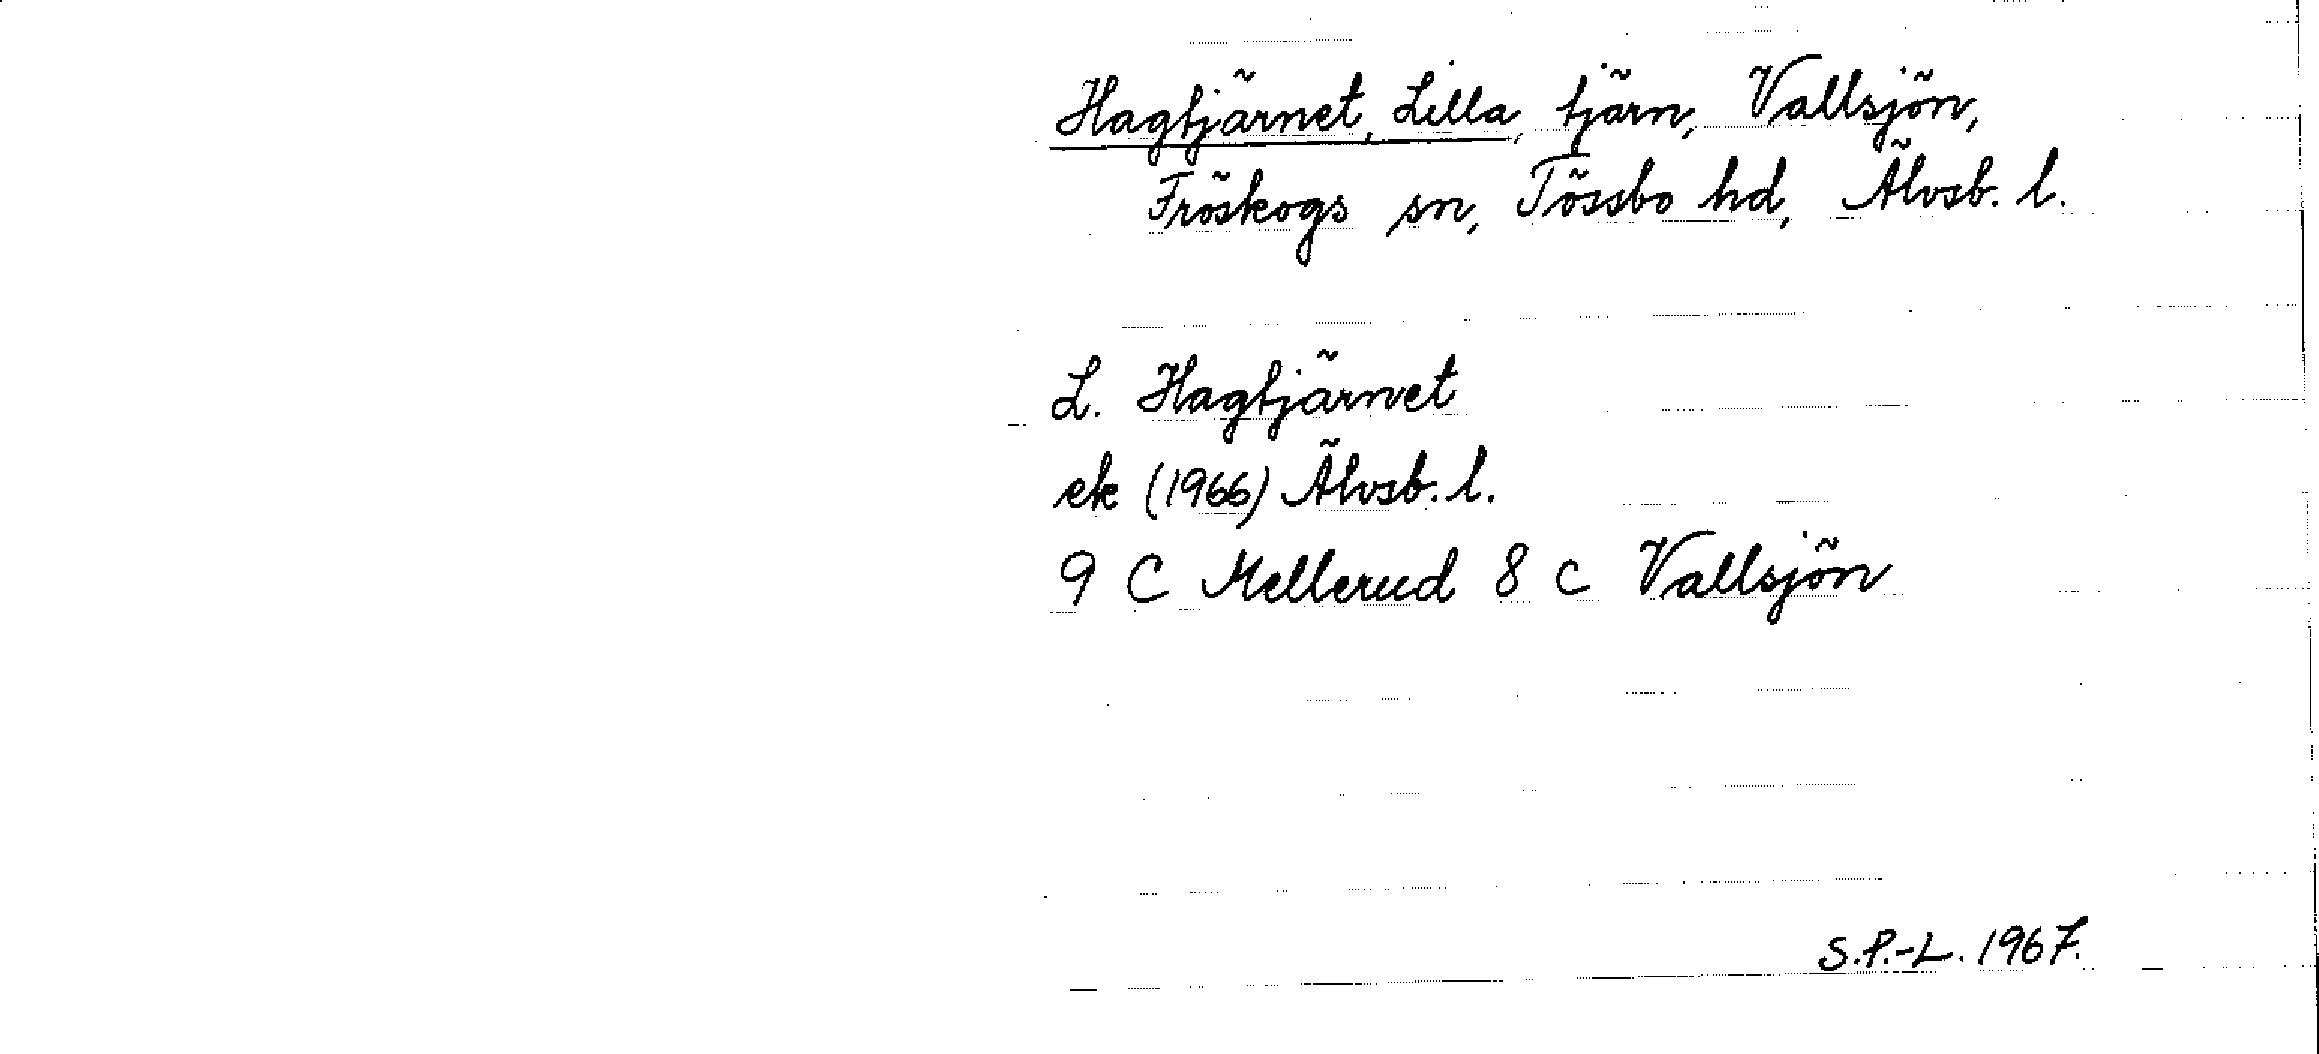 Hagtjärnet, Lilla, tjärn, Vallsjön,
Fröskogs sn, Tössbo hd, Älvsb. l.
L. Hagtjärnet
ek (1966) Älvsb. l.
9 C Mellerud 8 c Vallsjön
S.P.-L. 1967.